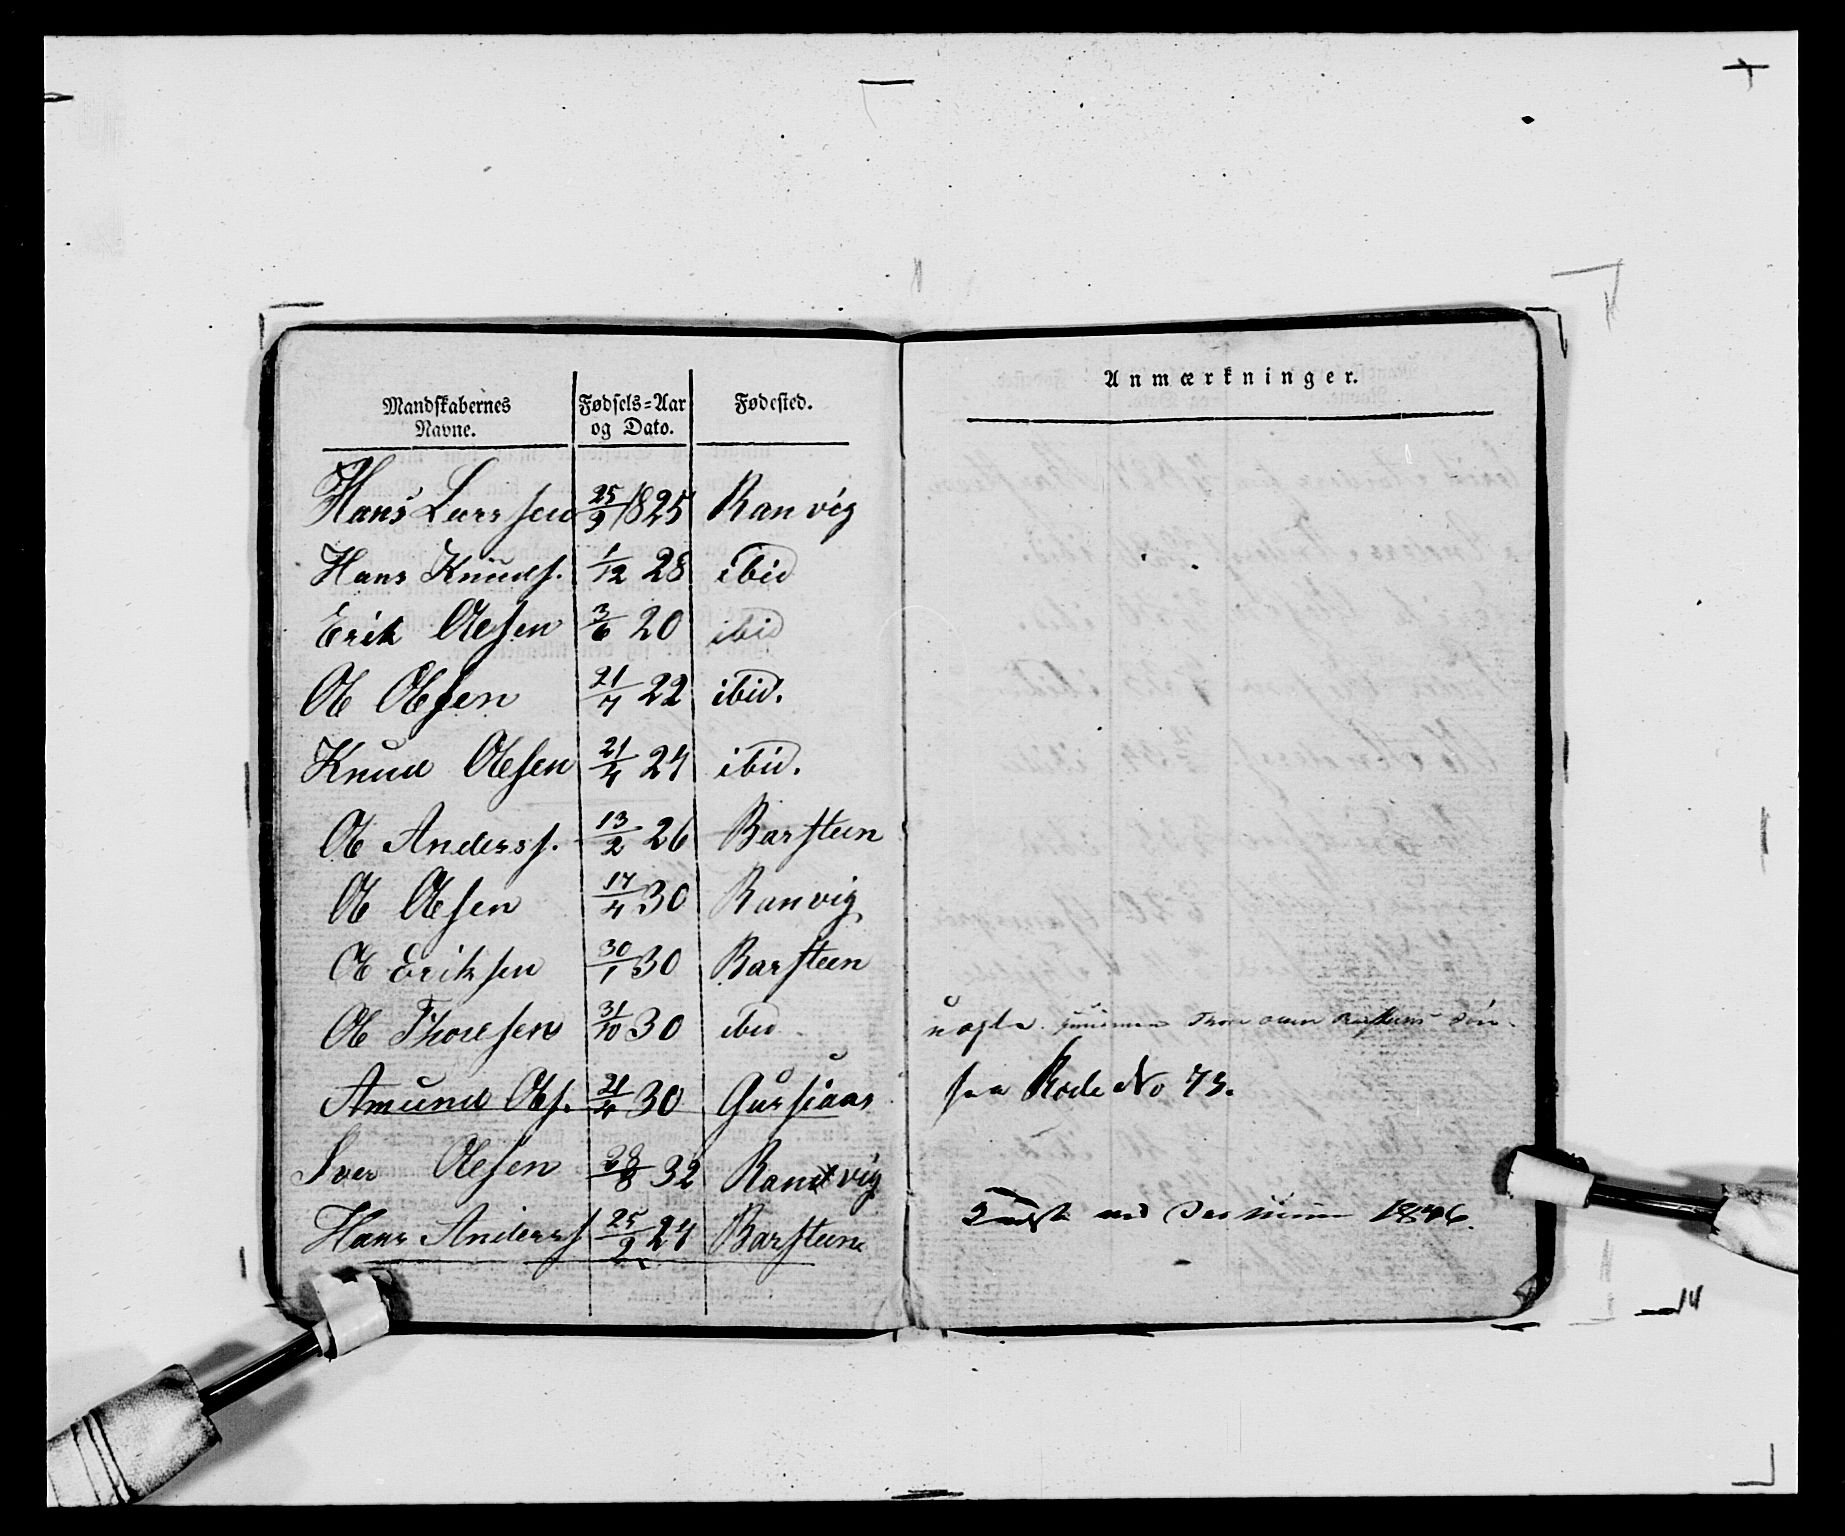 Mandskabernes Navne. Fødsels=Aar og Dato. Fødested.
Hans Larssen 25/9 1825 Ranvig
Hans Knuds. 1/12 28 ibid
Erik Olesen 3/6 20 ibid
Ole Olesen 21/7 22 ibid.
Knud Olesen 21/4 24 ibid.
Ole Anderss. 13/2 26 Barsteen
Ole Olesen 17/4 30 Ranvig
Ole Eriksen 30/1 30 Barsteen
Ole Thoresen 31/10 30 ibid
Amund Oles. 21/4 30 Gursiaas
Iver Olesen 28/8 32 Ranvig
Hans Anderss 25/2 24 Barsteen
Anmærkninger.
uægte Thore Søn
fra Rode No 73.
1846.
14